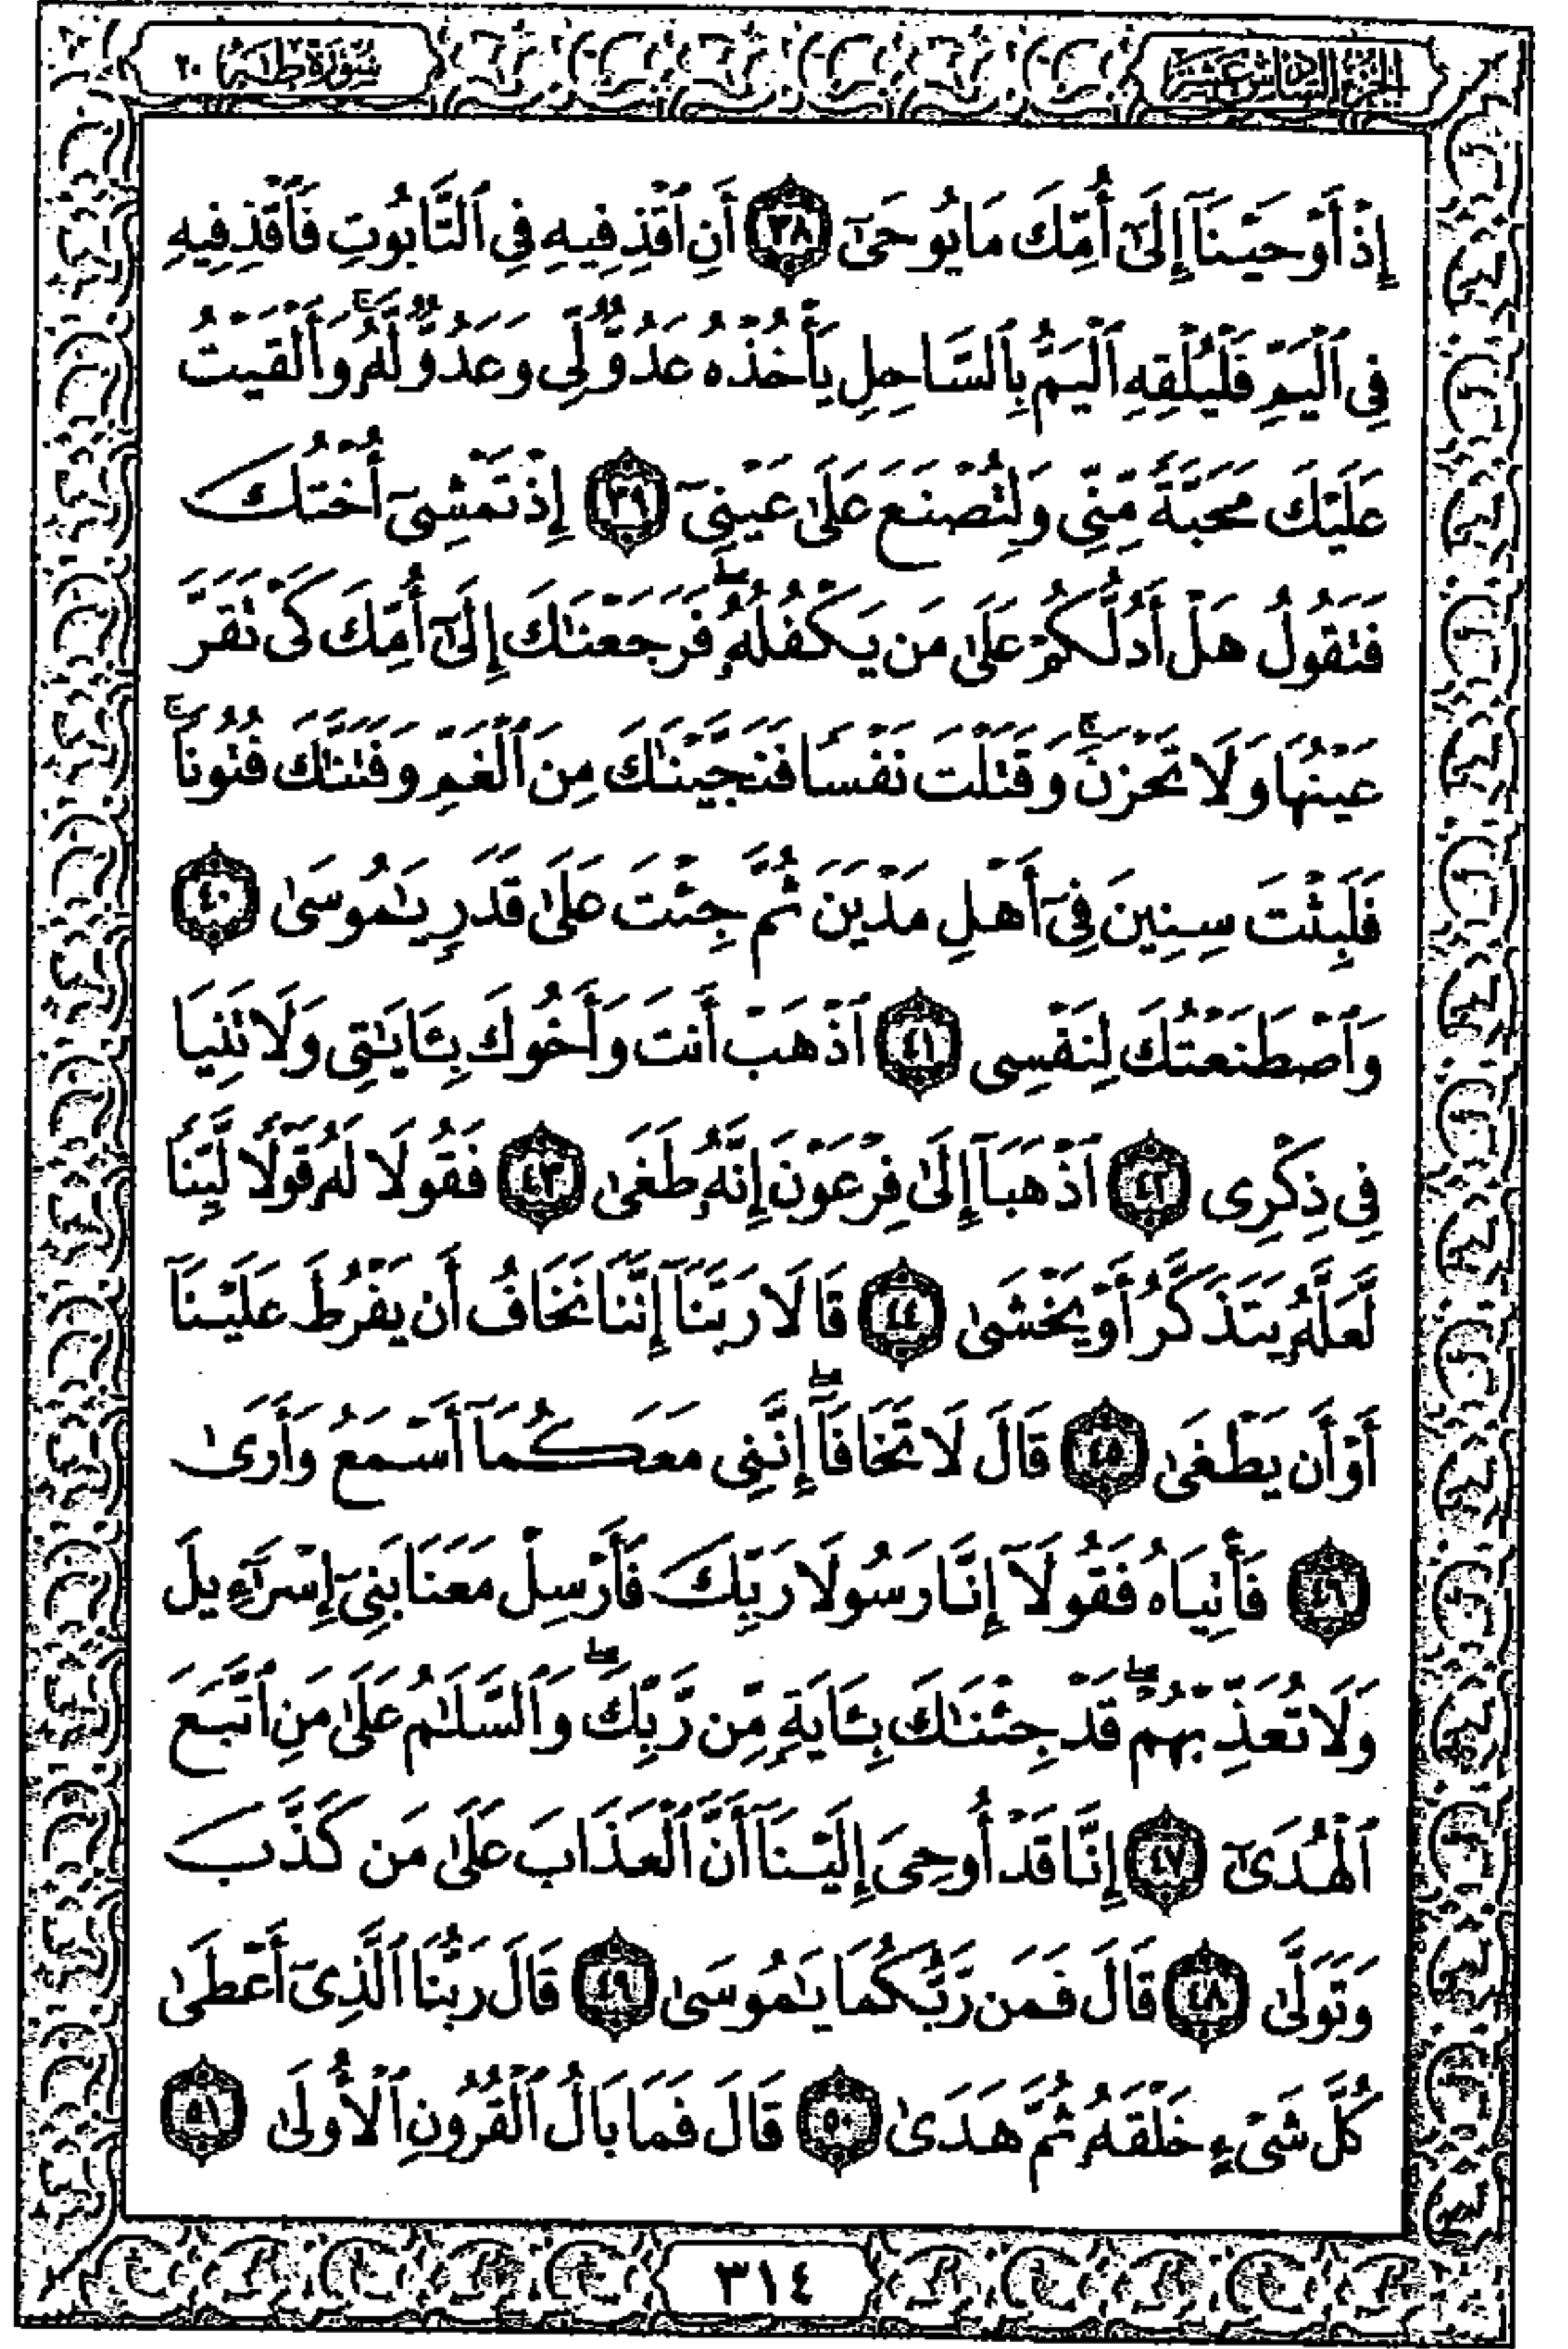 الجزء السادس عشر
سورة طه ٢٠
إِذْ أَوْحَيْنَآ إِلَىٰٓ أُمِّكَ مَا يُوحَىٰٓ ٣٨ أَنِ ٱقْذِفِيهِ فِى ٱلتَّابُوتِ فَٱقْذِفِيهِ
فِى ٱلْيَمِّ فَلْيُلْقِهِ ٱلْيَمُّ بِٱلسَّاحِلِ يَأْخُذْهُ عَدُوٌّ لِّى وَعَدُوٌّ لَّهُۥ ۚ وَأَلْقَيْتُ
عَلَيْكَ مَحَبَّةً مِّنِّى وَلِتُصْنَعَ عَلَىٰ عَيْنِىٓ ٣٩ إِذْ تَمْشِىٓ أُخْتُكَ
فَتَقُولُ هَلْ أَدُلُّكُمْ عَلَىٰ مَن يَكْفُلُهُۥ ۖ فَرَجَعْنَٰكَ إِلَىٰٓ أُمِّكَ كَىْ تَقَرَّ
عَيْنُهَا وَلَا تَحْزَنَ ۚ وَقَتَلْتَ نَفْسًا فَنَجَّيْنَٰكَ مِنَ ٱلْغَمِّ وَفَتَنَّٰكَ فُتُونًا ۚ
فَلَبِثْتَ سِنِينَ فِىٓ أَهْلِ مَدْيَنَ ثُمَّ جِئْتَ عَلَىٰ قَدَرٍ يَٰمُوسَىٰ ٤٠
وَٱصْطَنَعْتُكَ لِنَفْسِى ٤١ ٱذْهَبْ أَنتَ وَأَخُوكَ بِـَٔايَٰتِى وَلَا تَنِيَا
فِى ذِكْرِى ٤٢ ٱذْهَبَآ إِلَىٰ فِرْعَوْنَ إِنَّهُۥ طَغَىٰ ٤٣ فَقُولَا لَهُۥ قَوْلًا لَّيِّنًا
لَّعَلَّهُۥ يَتَذَكَّرُ أَوْ يَخْشَىٰ ٤٤ قَالَا رَبَّنَآ إِنَّنَا نَخَافُ أَن يَفْرُطَ عَلَيْنَآ
أَوْ أَن يَطْغَىٰ ٤٥ قَالَ لَا تَخَافَآ ۖ إِنَّنِى مَعَكُمَآ أَسْمَعُ وَأَرَىٰ
٤٦ فَأْتِيَاهُ فَقُولَآ إِنَّا رَسُولَا رَبِّكَ فَأَرْسِلْ مَعَنَا بَنِىٓ إِسْرَٰٓءِيلَ
وَلَا تُعَذِّبْهُمْ ۖ قَدْ جِئْنَٰكَ بِـَٔايَةٍ مِّن رَّبِّكَ ۖ وَٱلسَّلَٰمُ عَلَىٰ مَنِ ٱتَّبَعَ
ٱلْهُدَىٰٓ ٤٧ إِنَّا قَدْ أُوحِىَ إِلَيْنَآ أَنَّ ٱلْعَذَابَ عَلَىٰ مَن كَذَّبَ
وَتَوَلَّىٰ ٤٨ قَالَ فَمَن رَّبُّكُمَا يَٰمُوسَىٰ ٤٩ قَالَ رَبُّنَا ٱلَّذِىٓ أَعْطَىٰ
كُلَّ شَىْءٍ خَلْقَهُۥ ثُمَّ هَدَىٰ ٥٠ قَالَ فَمَا بَالُ ٱلْقُرُونِ ٱلْأُولَىٰ ٥١
٣١٤